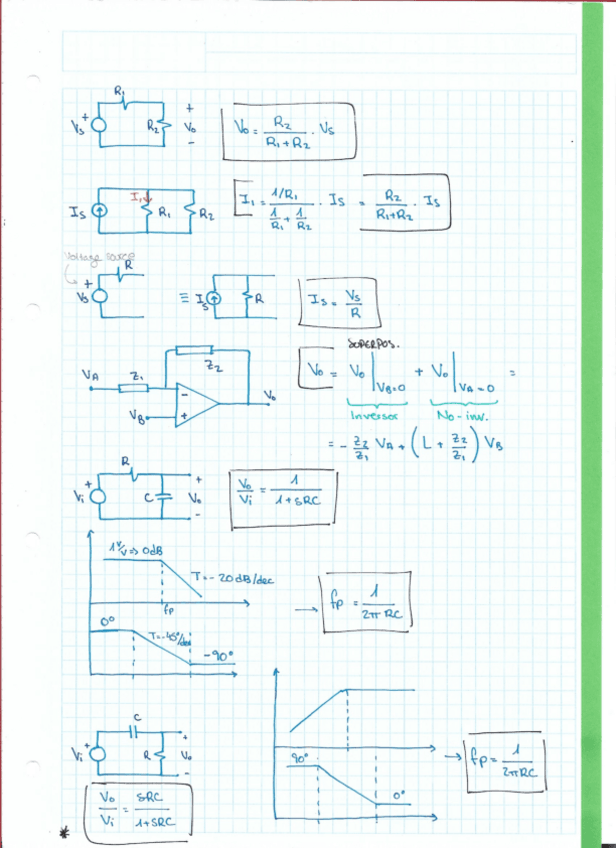 R1
Vs + R2 + Vo -
Vo = R2 / (R1+R2) · Vs
Is I1 R1 R2
I1 = (1/R1) / (1/R1 + 1/R2) · Is = R2 / (R1+R2) · Is
Voltage source
R
+ Vs ≡ Is R
Is = Vs / R
SUPERPOS.
VA Z1 Z2 - + VB Vo
Vo = Vo |VB=0 + Vo |VA=0 =
Inversor No-inv.
= - Z2/Z1 VA + (1 + Z2/Z1) VB
R
+ Vi C + Vo -
Vo/Vi = 1 / (1+sRC)
1 V/V => 0dB
T=-20dB/dec
fp
→ fp = 1 / (2π RC)
0°
T=-45°/dec
-90°
C
+ Vi R + Vo -
90°
0°
→ fp = 1 / (2πRC)
Vo/Vi = sRC / (1+sRC)
*